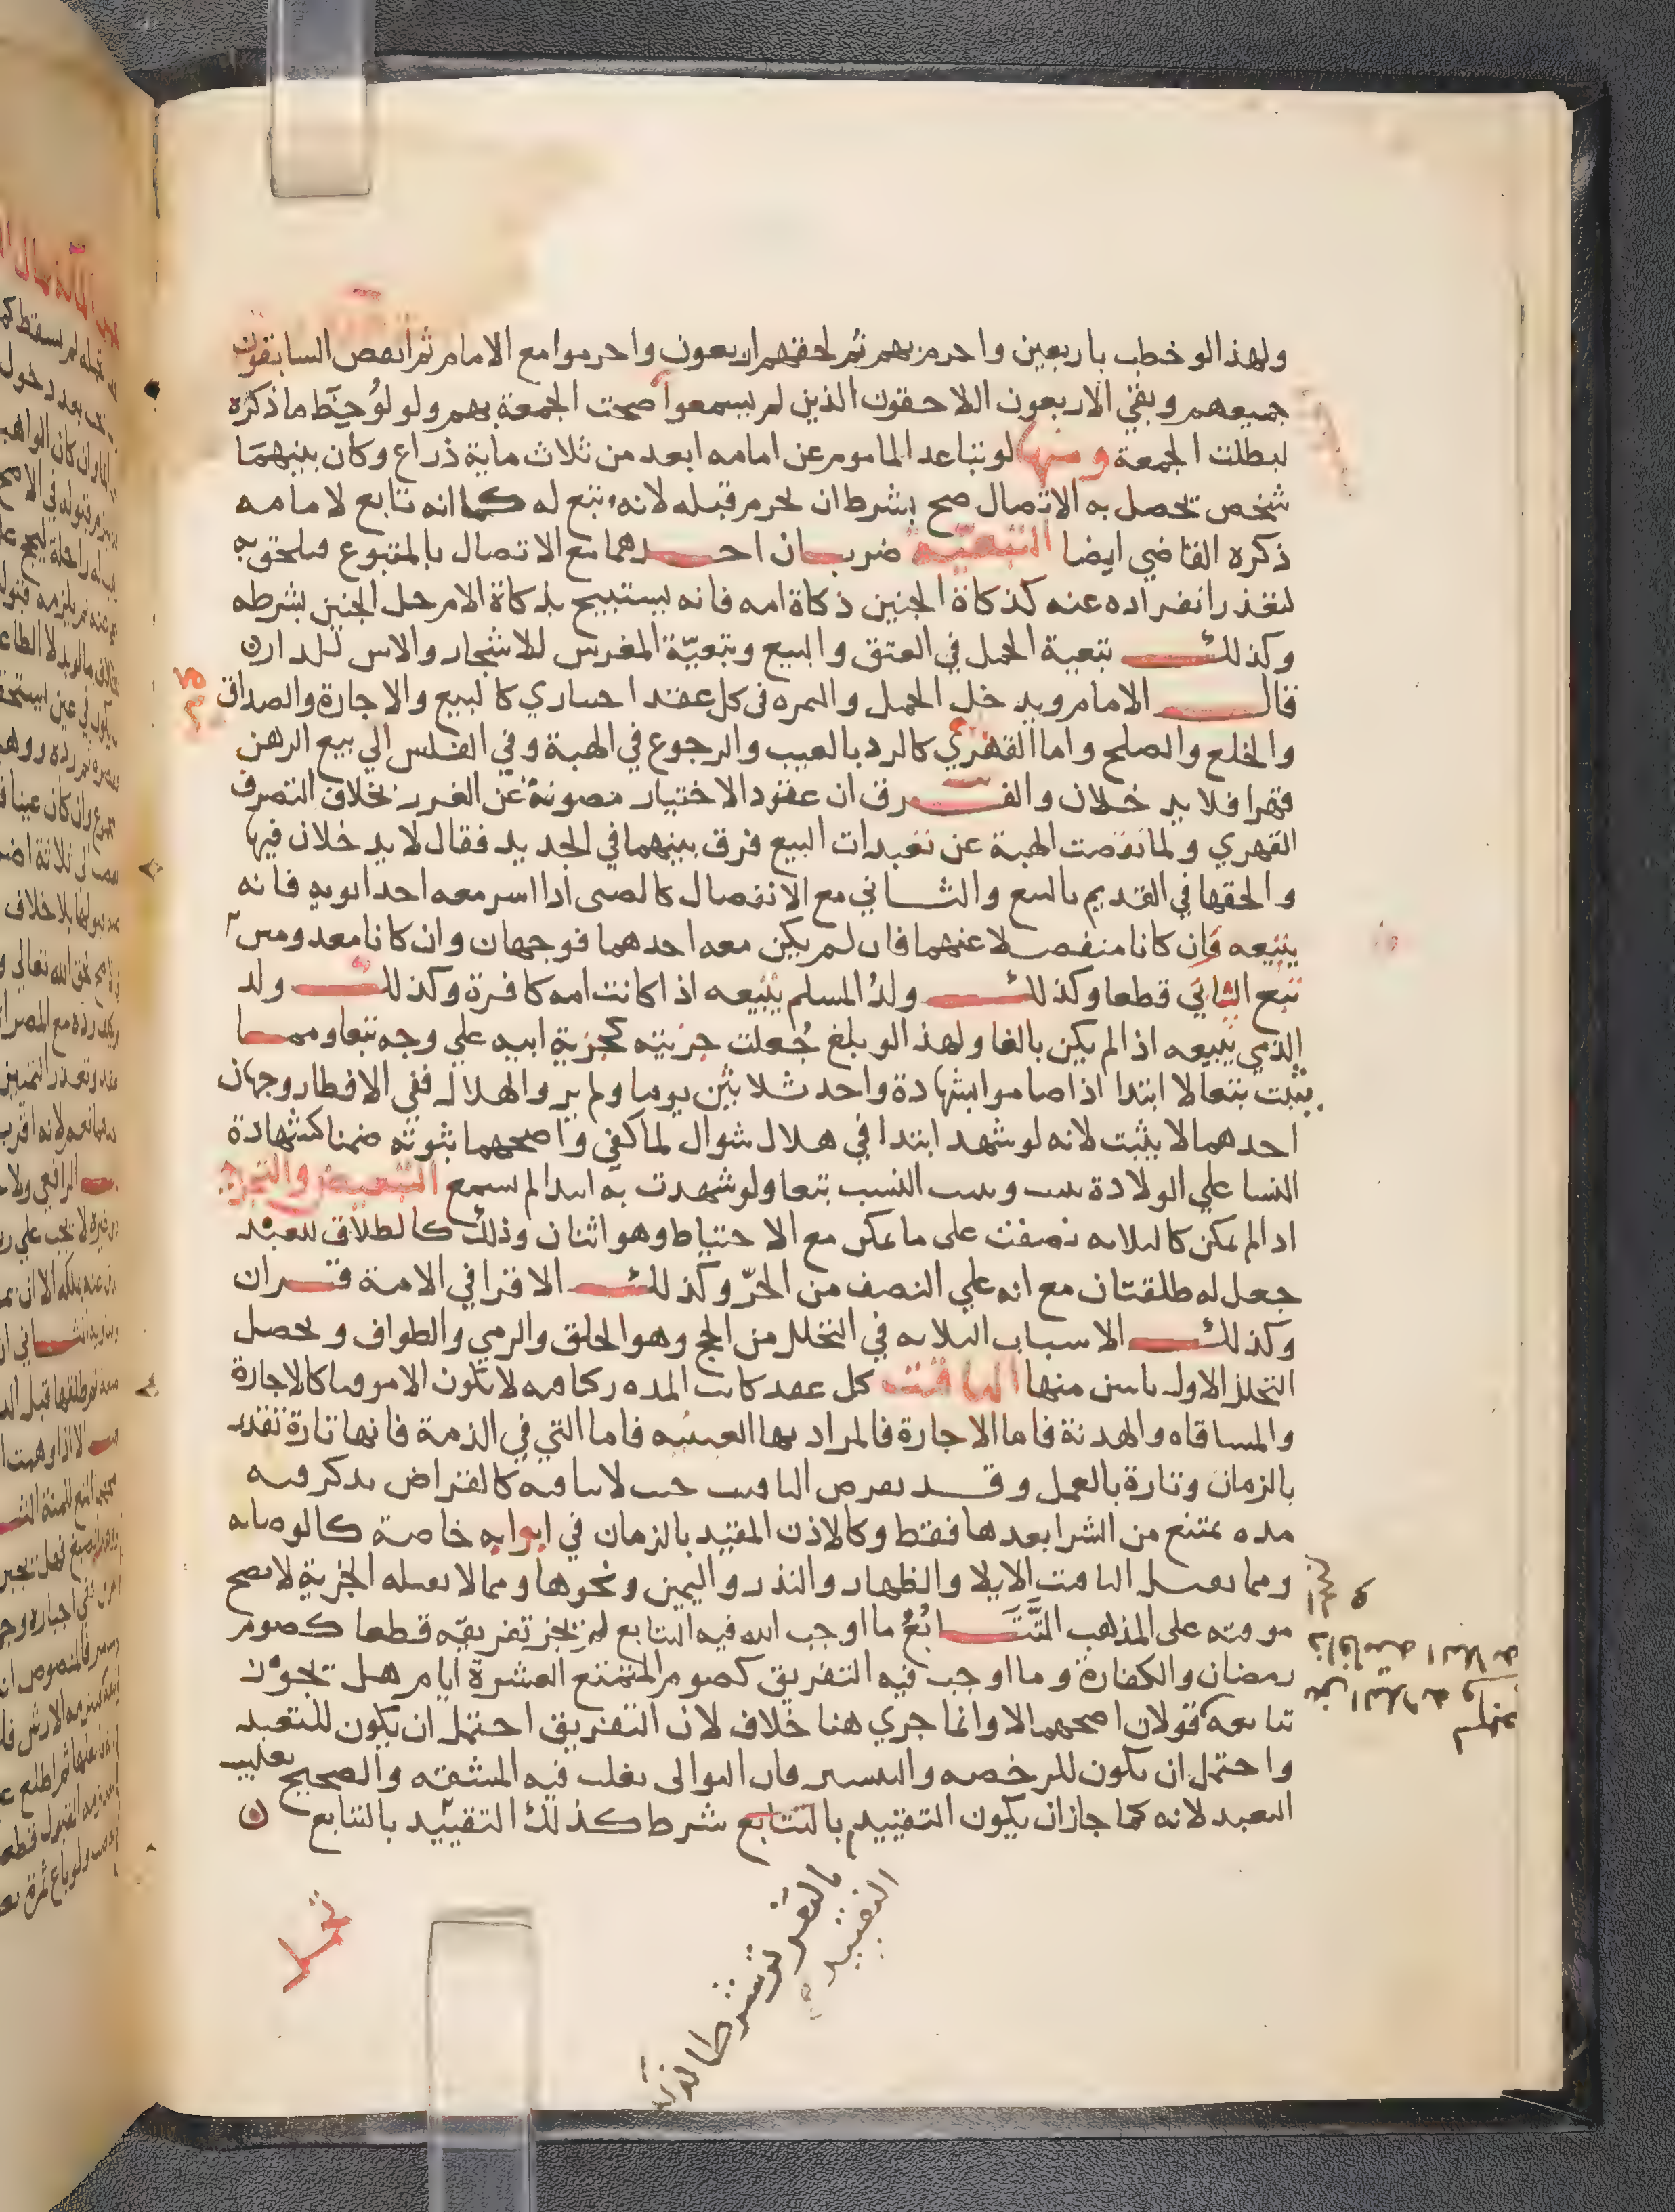 ولهذا لو خطب باربعين واحرم بهم ثم لحقهم اربعون واحرموا مع الامام ثم انفض السابقون
جميعهم وبقي الاربعون اللاحقون الذين لم يسمعوا صحت الجمعة بهم ولو لوحظ ما ذكره
لبطلت الجمعة ومنها لو تباعد الماموم عن امامه ابعد من ثلاث ماية ذراع وكان بينهما
شخص تحصل به الاتصال صح بشرط ان يحرم قبله لانه تبع له كما انه تابع لامامه
ذكره القاضي ايضا التبعيّة ضربان احدهما مع الاتصال بالمتبوع فيلحق به
لتعذر انفراده عنه كذكاة الجنين ذكاة امه فانه يستبيح بذكاة الام حل الجنين بشرطه
وكذلك تبعية الحمل في العتق والبيع وتبعيّة المغرس للاشجار والاس للدارن
قال الامام ويدخل الحمل والثمره في كل عقد اختياري كالبيع والاجارة والصداق
والخلع والصلح واما القهري كالرد بالعيب والرجوع في الهبة وفي الفلس الي بيع الرهن
قهرا فلا يدخلان والفرق ان عقود الاختيار مصونة عن الغرر بخلاف التصرف
القهري ولما نقصت الهبة عن تعبدات البيع فرق بينهما في الجديد فقال لا يدخلان فيها
والحقها في القديم بالبيع والثاني مع الانفصال كالصبى اذا اسر معه احد ابويه فانه
يتبعه وان كانا منفصلا عنهما فان لم يكن معه احدهما فوجهان وان كانا معدومين
تبع الثاني قطعا وكذلك ولد المسلم يتبعه اذا كانت امه كافرة وكذلك ولد
الذمي يتبعه اذا لم يكن بالغا ولهذا لو بلغ جُعلت جزيته كجزية ابيه علي وجه تبعا ومما
يثبت تبعا لا ابتدا اذا صاموا بشهادة واحد ثلاثين يوما ولم يروا الهلال ففي الافطار وجهان
احدهما لا يثبت لانه لو شهد ابتدا في هلال شوال لما كفي واصحهما ثبوته ضمنا كشهادة
النسا علي الولادة تثبت ويثبت النسب تبعا ولو شهدت به ابتدا لم تسمع التبعيض والتجزي
اذا لم يمكن كالثلاثه نصفت على ما يمكن مع الاحتياط وهو اثنان وذلك كالطلاق للعبد
جعل له طلقتان مع انه علي النصف من الحرّ وكذلك الاقرا في الامة قران
وكذلك الاسباب الثلاثه في التحلل من الحج وهو الحلق والرمي والطواف ويحصل
التحلل الاول باثنين منها التاقيت كل عقد كانت المده ركنا فيه لا يكون الا موقتا كالاجارة
والمساقاه والهدنة فاما الاجارة فالمراد بها العينيه فاما التي في الذمة فانها تارة تقدر
بالزمان وتارة بالعمل وقد يعرض التاقيت حيث لا ينافيه كالقراض يذكر فيه
مده يمتنع من الشرا بعدها فقط وكالاذن المقيد بالزمان في ابوابه خاصة كالوصايه
ومما يقبل التاقيت الايلا والظهار والنذر واليمين ونحوها ومما لا يقبله الجزية لا تصح
موقته على المذهب التَّتَابُعُ ما اوجب الله فيه التتابع لم يجز تفريقه قطعا كصوم
رمضان والكفارة وما اوجب فيه التفريق كصوم المتمتع العشرة ايام هل يجوز
تتابعه قولان اصحهما لا وانما جري هنا خلاف لان التفريق احتمل ان يكون للتعبد
واحتمل ان يكون للرخصه والتيسير فان التوالى يغلب فيه المشقه والصحيح تغليب
التعبد لانه كما جاز ان يكون التقييد بالتتابع شرطا كذلك التقييد بالتتابع
بالتفريق شرطا لان
التقييد